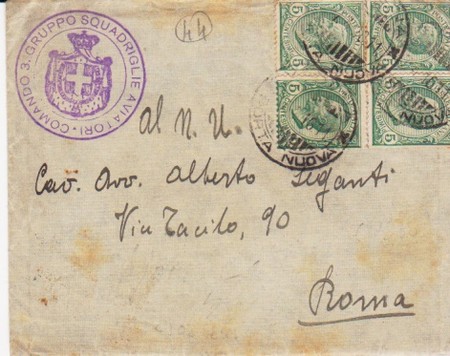 COMANDO 3. GRUPPO SQUADRIGLIE AVIATORI
44
5 5
5 5
Al N. U.
Cav. Avv. Alberto Seganti
Via Tacito, 90
Roma